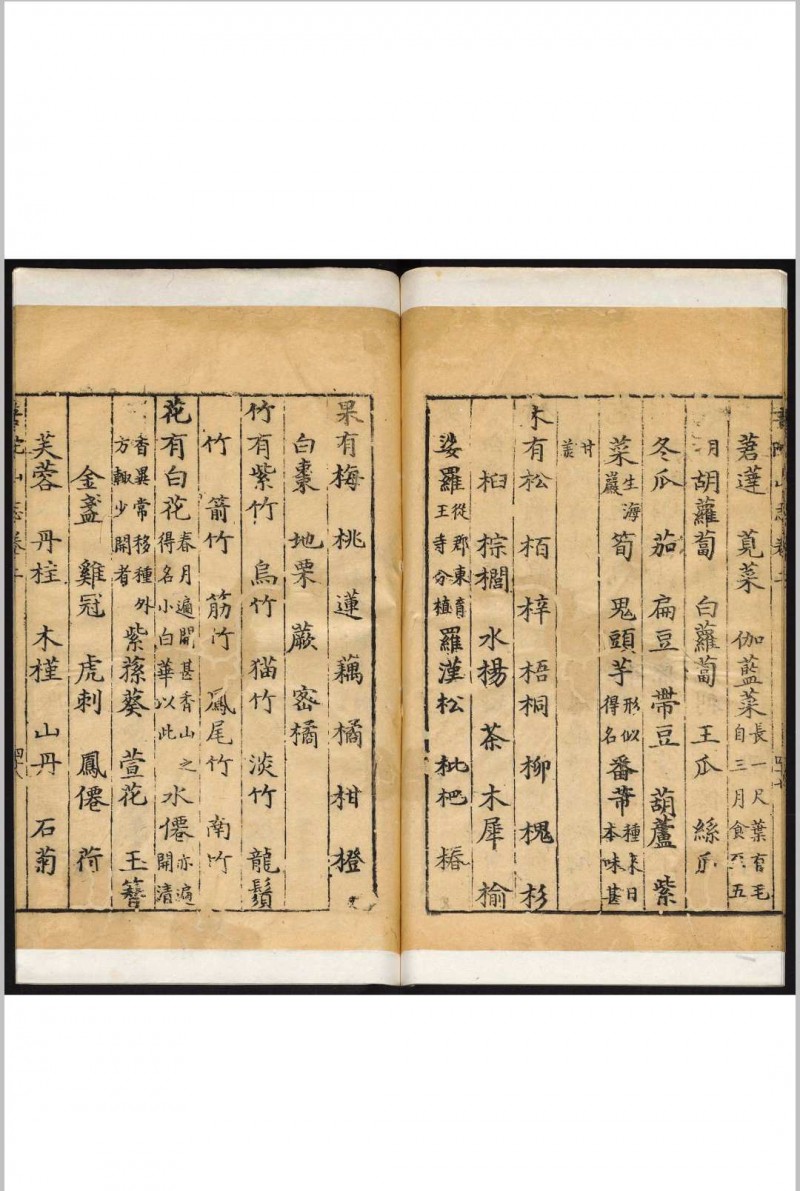 莙薘 莧菜 伽藍菜長一尺葉有毛自三月食至五
月胡蘿蔔 白蘿蔔 王瓜 絲瓜
冬瓜 茄 扁豆 帶豆 葫蘆 紫
菜生海巖 筍 鬼頭芋形似得名 番芋種來日本味甚
甘
木有松 栢 梓 梧桐 柳 槐 杉
桕 棕櫚 水楊 茶 木犀 榆
娑羅從郡東育王寺分植 羅漢松 枇杷 椿
果有梅 桃 蓮 藕 橘 柑 橙
白棗 地栗 蕨 密橘
竹有紫竹 烏竹 猫竹 淡竹 龍鬚
竹 箭竹 筋竹 鳳尾竹 南竹
花有白花春月遍開甚香山之得名小白華以此 水僊亦遍開清
香異常移種外方輙少開者 紫蓀葵 萱花 玉簪
金盞 雞冠 虎刺 鳳僊 荷
芙蓉 丹桂 木槿 山丹 石菊
普陀山志卷二